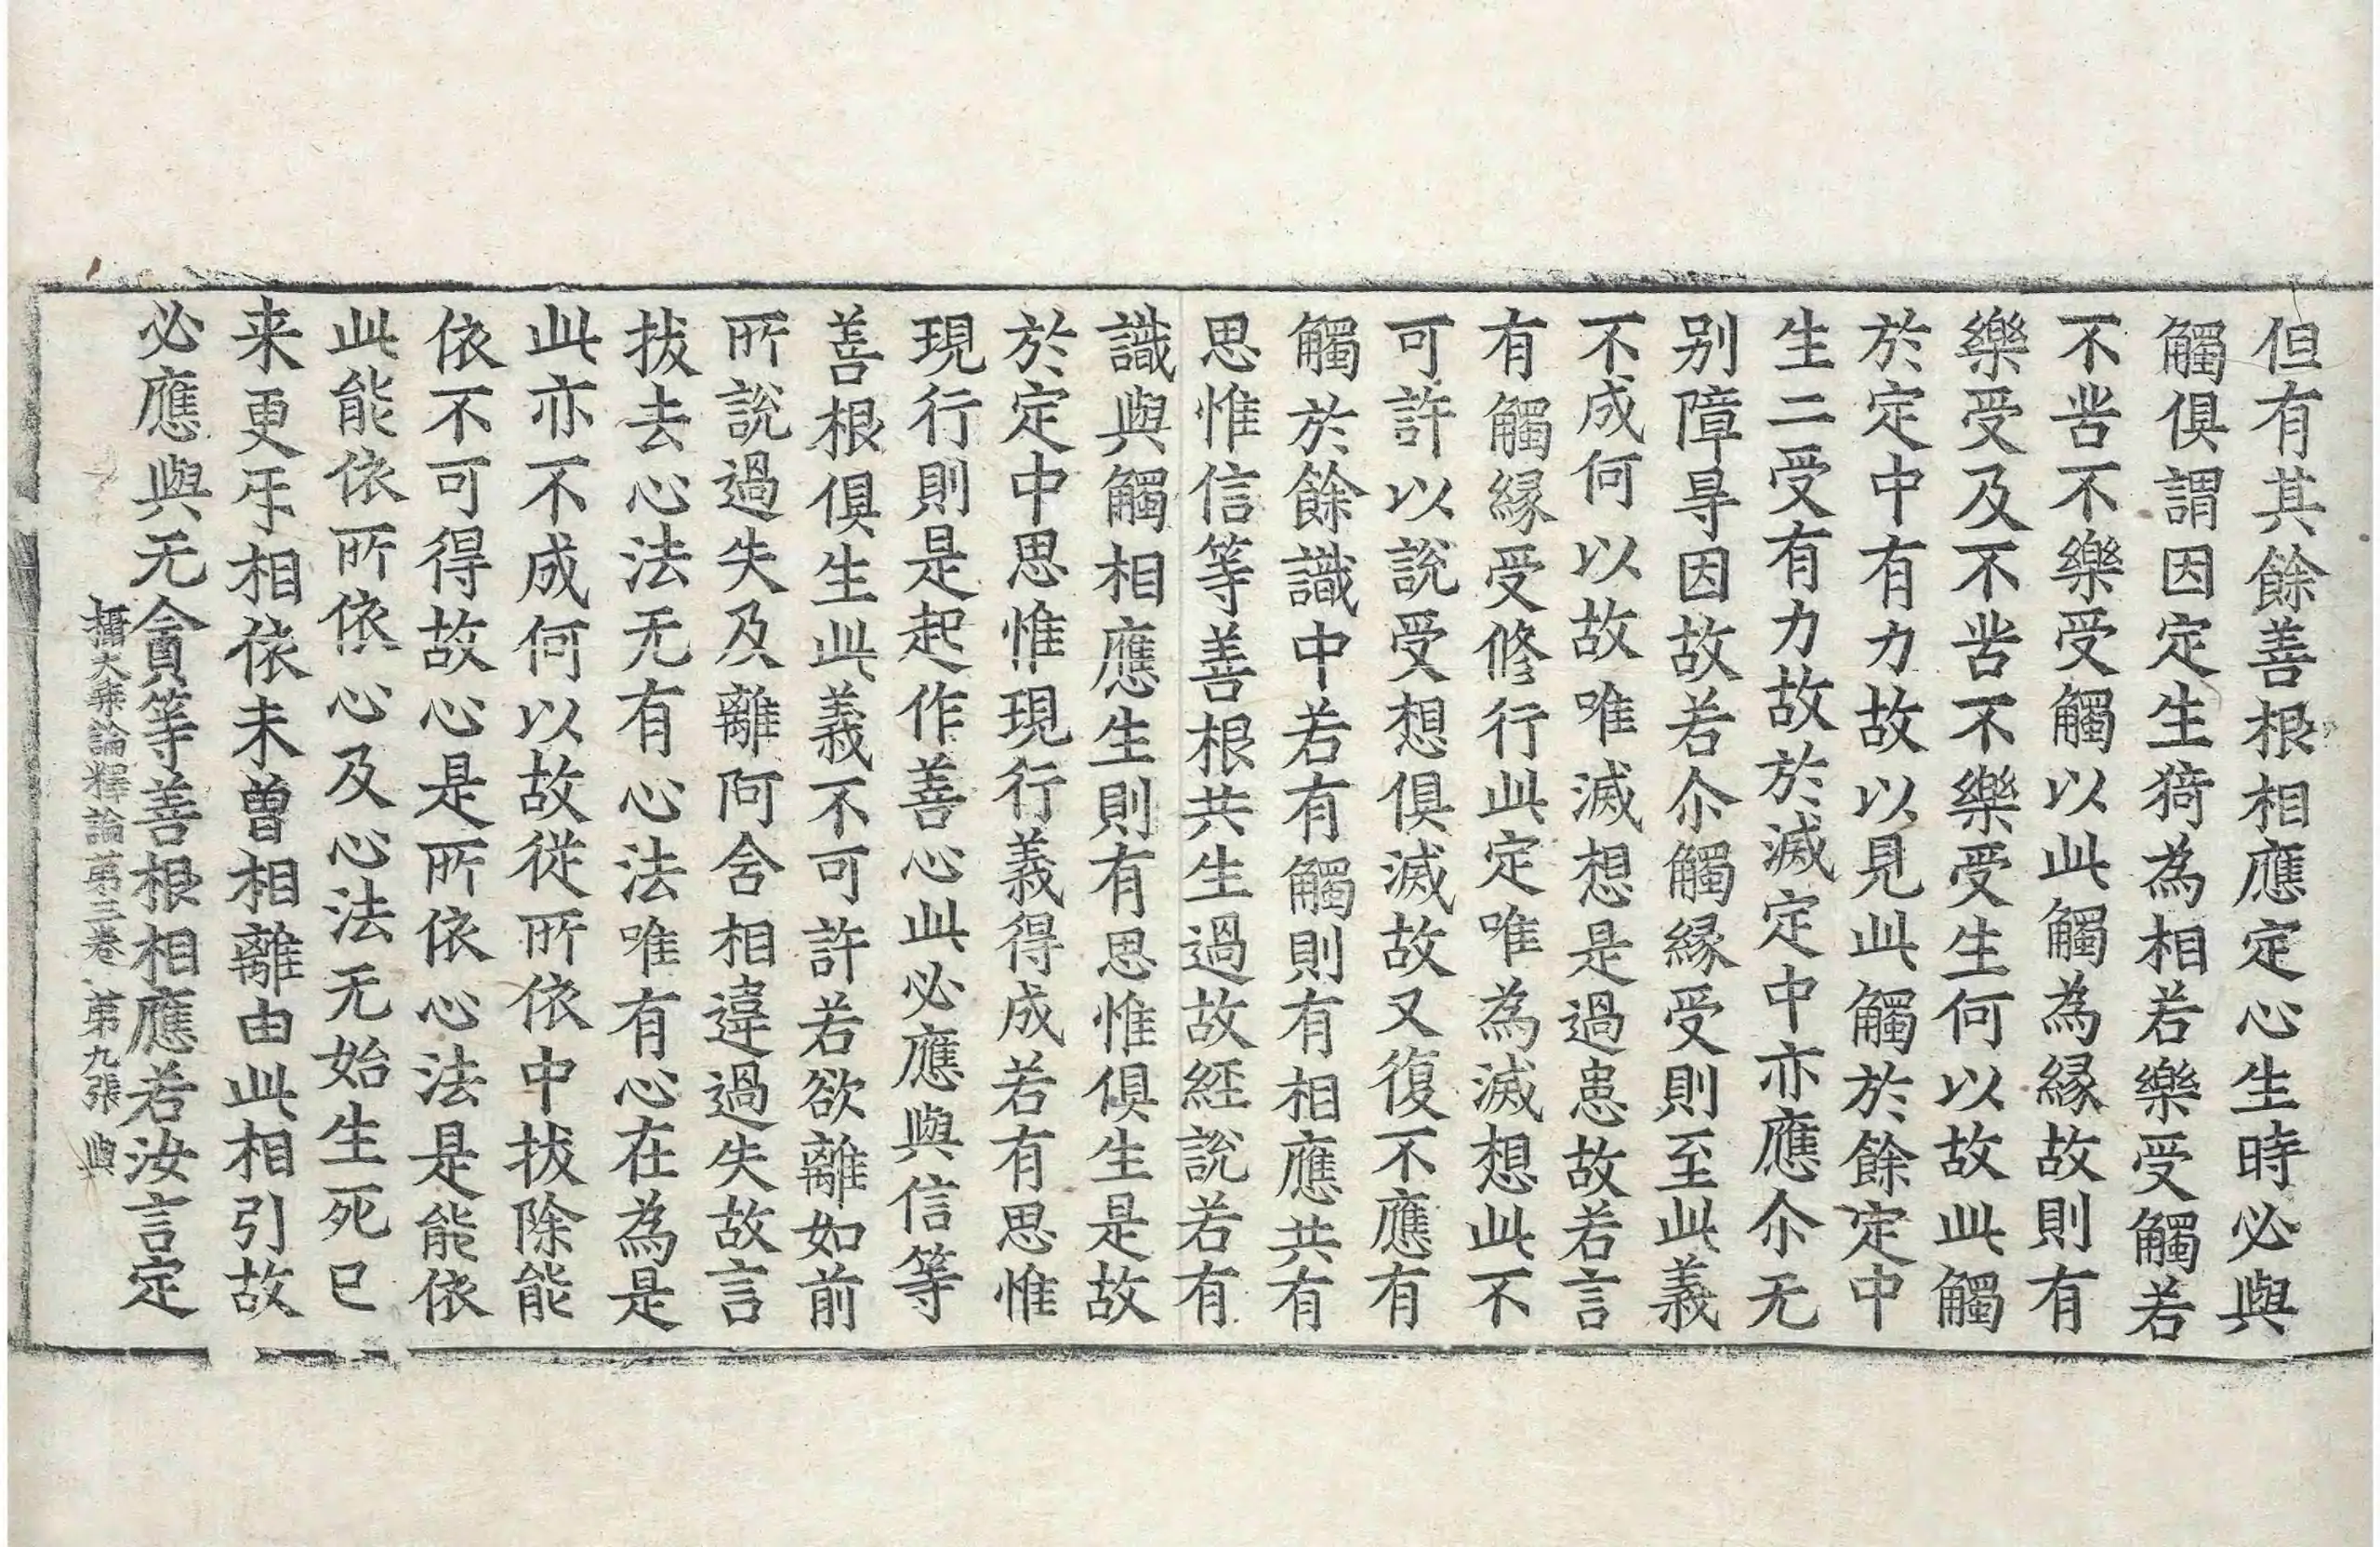 但有其餘善根相應定心生時必與
觸俱謂因定生猗為相若樂受觸若
不苦不樂受觸以此觸為縁故則有
樂受及不苦不樂受生何以故此觸
於定中有力故以見此觸於餘定中
生二受有力故於滅定中亦應尒无
别障㝵因故若尒觸縁受則至此義
不成何以故唯滅想是過患故若言
有觸縁受修行此定唯為滅想此不
可許以說受想俱滅故又復不應有
觸於餘識中若有觸則有相應共有
思惟信等善根共生過故経說若有
識與觸相應生則有思惟俱生是故
於定中思惟現行義得成若有思惟
現行則是起作善心此必應與信等
善根俱生此義不可許若欲離如前
所說過失及離阿含相違過失故言
拔去心法无有心法唯有心在為是
此亦不成何以故從所依中拔除能
依不可得故心是所依心法是能依
此能依所依心及心法无始生死已
来更㸦相依未曽相離由此相引故
必應與无貪等善根相應若汝言定
攝大乘論釋論第三卷 第九張 與